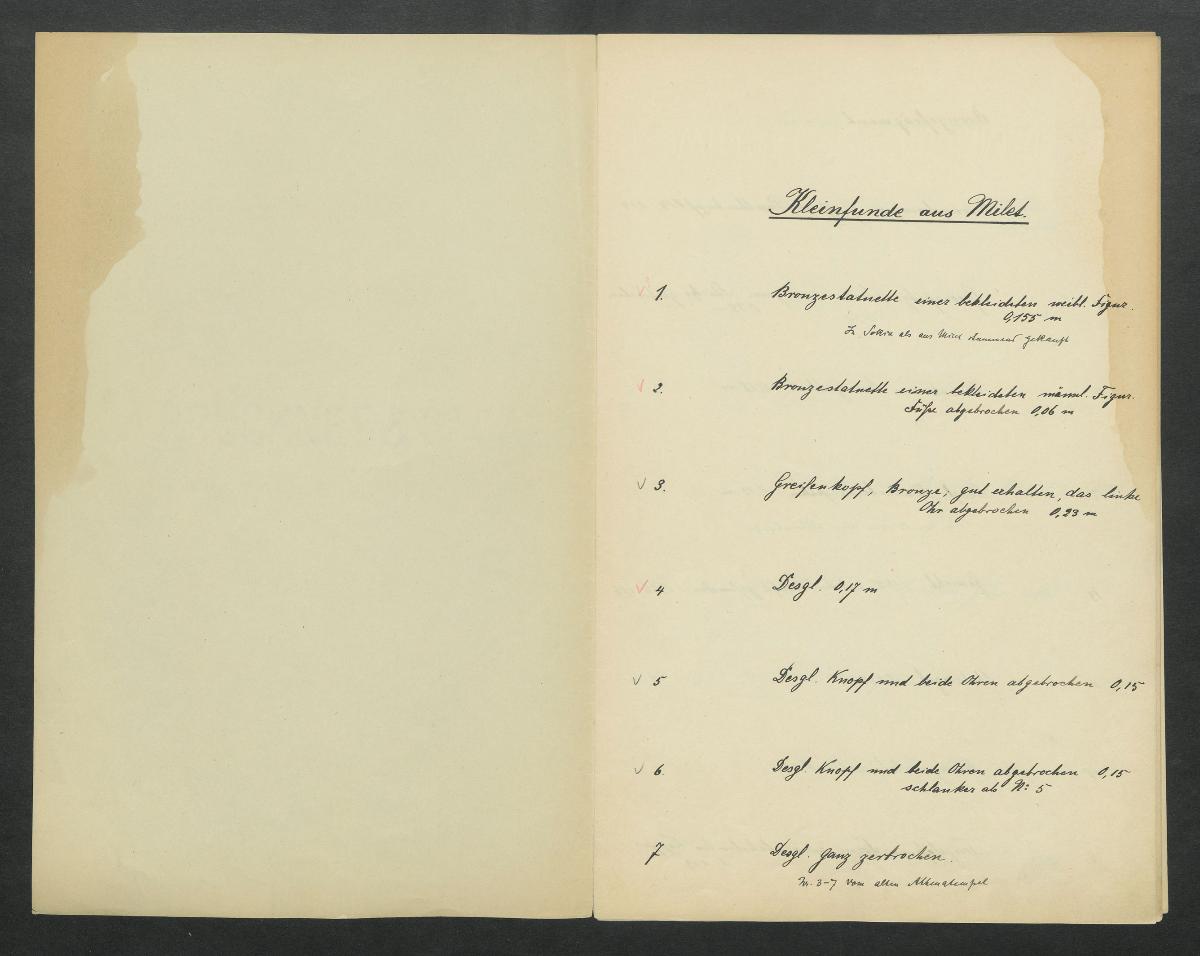 Kleinfunde aus Milet.
1. Bronzestatuette einer bekleideten weibl. Figur.
0,155 m
In Sokia als aus Milet stammend gekauft
2. Bronzestatuette einer bekleideten männl. Figur.
Füße abgebrochen 0,06 m
3. Greifenkopf, Bronze, gut erhalten, das linke
Ohr abgebrochen 0,23 m
4 Desgl. 0,17 m
5 Desgl. Knopf und beide Ohren abgebrochen 0,15
6. Desgl. Knopf und beide Ohren abgebrochen 0,15
schlanker als No 5
7 Desgl. ganz zerbrochen.
Nr. 3-7 vom alten Athenatempel